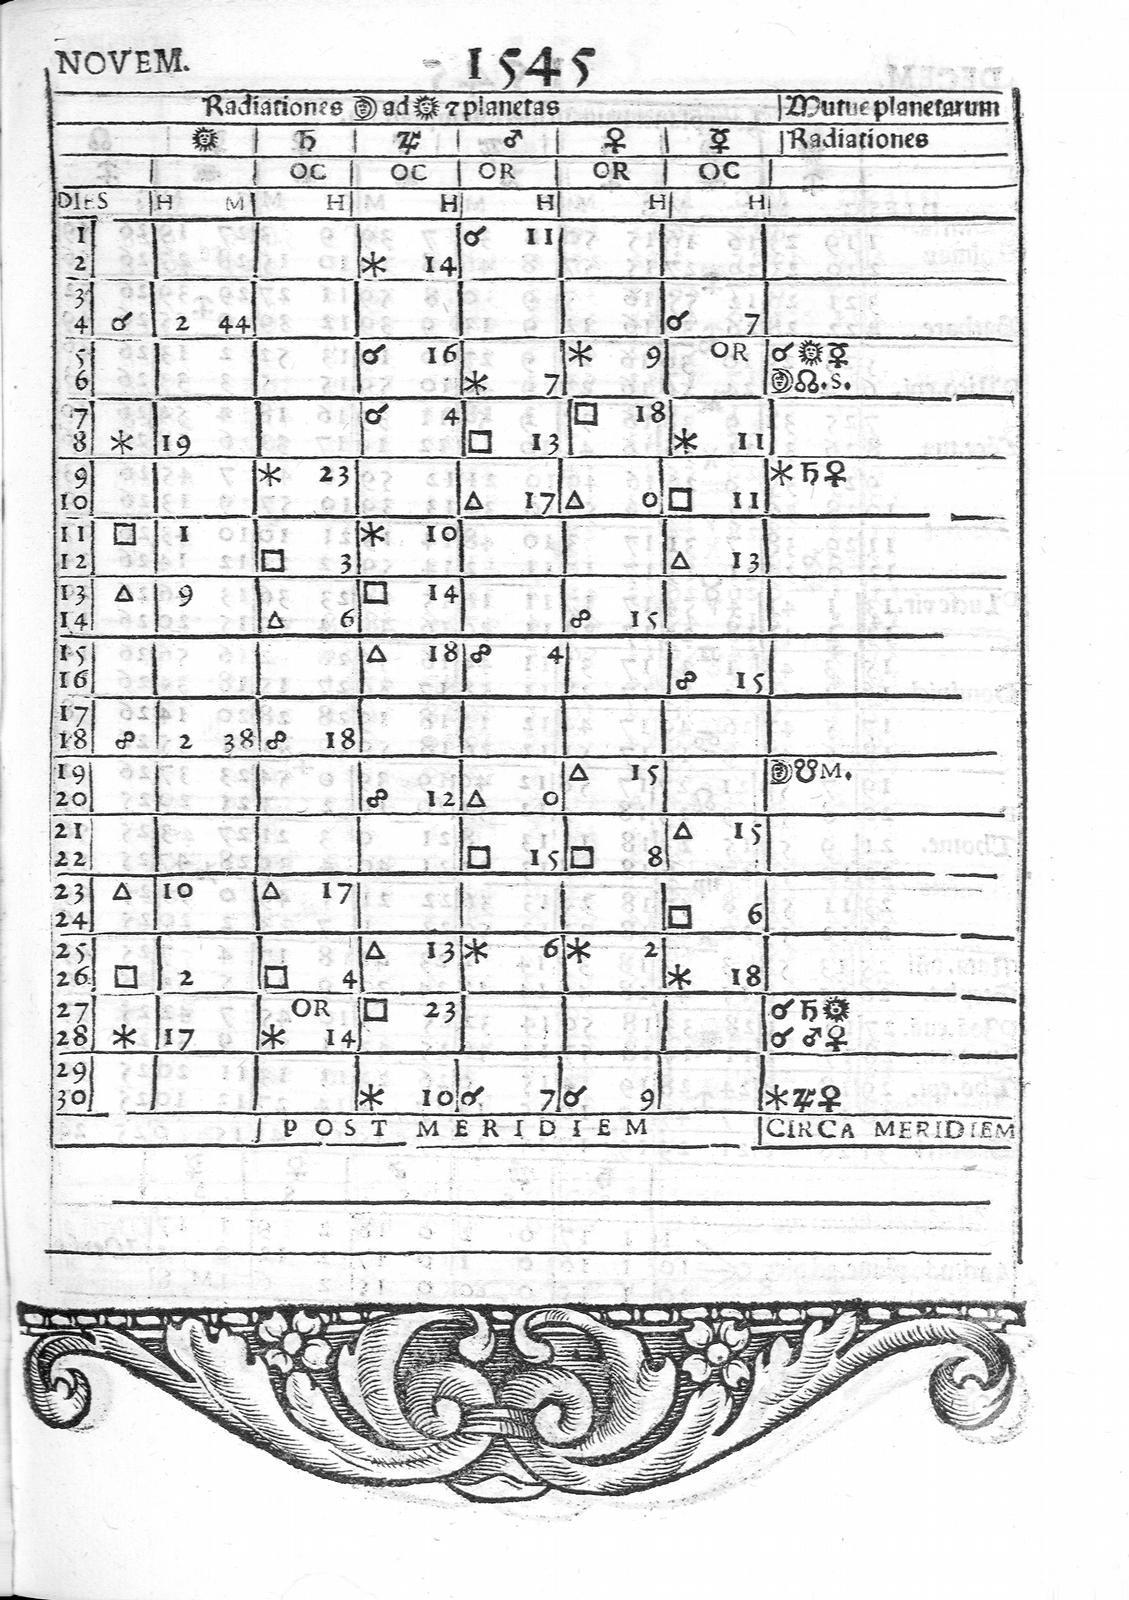 NOVEM. 1545
Radiationes ☽ ad ☉ ⁊ planetas | Mutue planetarum
☉ | ♄ | ♃ | ♂ | ♀ | ☿ | Radiationes
OC | OC | OR | OR | OC
DIES | H M | H | H | H | H | H
1 | | | | ☌ 11 | | |
2 | | | ⚹ 14 | | | |
3 | | | | | | |
4 | ☌ 2 44 | | | | | ☌ 7 |
5 | | | ☌ 16 | | ⚹ 9 | OR | ☌ ☉ ☿
6 | | | | ⚹ 7 | | | ☽ ☊. S.
7 | | | ☌ 4 | | □ 18 | |
8 | ⚹ 19 | | | □ 13 | | ⚹ 11 |
9 | | ⚹ 23 | | | | | ⚹ ♄ ♀
10 | | | | △ 17 | △ 0 | □ 11 |
11 | □ 1 | | ⚹ 10 | | | |
12 | | □ 3 | | | | △ 13 |
13 | △ 9 | | □ 14 | | | |
14 | | △ 6 | | | ☍ 15 | |
15 | | | △ 18 | ☍ 4 | | |
16 | | | | | | ☍ 15 |
17 | | | | | | |
18 | ☍ 2 38 | ☍ 18 | | | | |
19 | | | | | △ 15 | | ☽ ☋ M.
20 | | | ☍ 12 | △ 0 | | |
21 | | | | | | △ 15 |
22 | | | | □ 15 | □ 8 | |
23 | △ 10 | △ 17 | | | | |
24 | | | | | | □ 6 |
25 | | | △ 13 | ⚹ 6 | ⚹ 2 | |
26 | □ 2 | □ 4 | | | | ⚹ 18 |
27 | | OR | □ 23 | | | | ☌ ♄ ☉
28 | ⚹ 17 | ⚹ 14 | | | | | ☌ ♂ ♀
29 | | | | | | |
30 | | | ⚹ 10 | ☌ 7 | ☌ 9 | | ⚹ ♃ ♀
POST MERIDIEM | CIRCA MERIDIEM